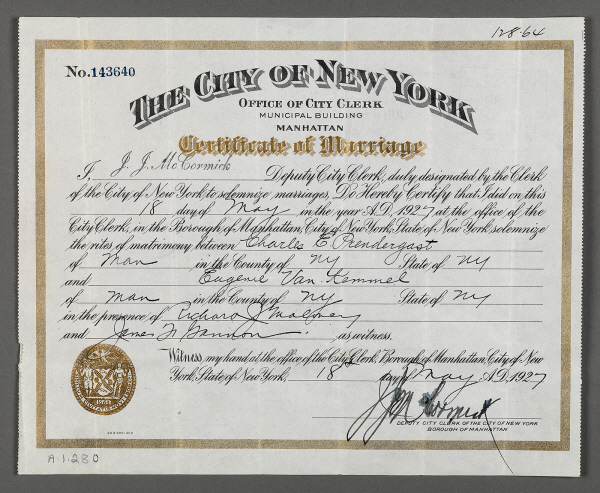 128.64
No. 143640
THE CITY OF NEW YORK
OFFICE OF CITY CLERK
MUNICIPAL BUILDING
MANHATTAN
Certificate of Marriage
I, J. J. McCormick Deputy City Clerk, duly designated by the Clerk
of the City of New York to solemnize marriages, Do Hereby Certify that I did on this
18 day of May in the year A.D. 1927 at the office of the
City Clerk, in the Borough of Manhattan, City of New York, State of New York solemnize
the rites of matrimony between Charles E. Prendergast
of Man in the County of NY State of NY
and Eugenie Van Kemmel
of Man in the County of NY State of NY
in the presence of Richard J Maloney
and James F Gannon as witness.
Witness, my hand at the office of the City Clerk, Borough of Manhattan, City of New
York, State of New York, 18 day of May A.D. 1927
J J McCormick
DEPUTY CITY CLERK OF THE CITY OF NEW YORK
BOROUGH OF MANHATTAN
A.1.280